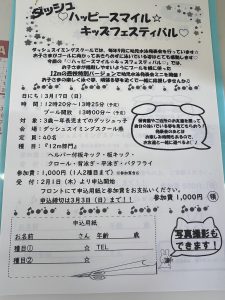 ダッシュ
♡ハッピースマイル☆
キッズフェスティバル♡
ダッシュスイミングスクールでは、毎年3月に幼児水泳発表会を行っています☆
今回の「ハッピースマイル☆キッズフェスティバル」では、
12mの普段特別バージョンで幼児水泳発表会ミニを開催！
日にち：3月17日（日）
時間：12時20分～13時25分（予定）
プール開放 13時30分～（予定）
対象：3歳～年長までのダッシュっ子
会場：ダッシュスイミングスクール
定員：40名
種目：『12m部門』
ヘルパー付板キック・板キック・
クロール・背泳ぎ・平泳ぎ・バタフライ
参加費：1,000円（1人2種目まで）
受付：2月1日（木）より申込開始
フロントにて申込用紙と参加費をお支払いください。
申込締切は3月3日（日）まで！！
参加費 1,000円 領
申込用紙
お名前 さん 年齢 歳
種目① ☆ TEL
種目② ☆
写真撮影も
できます！